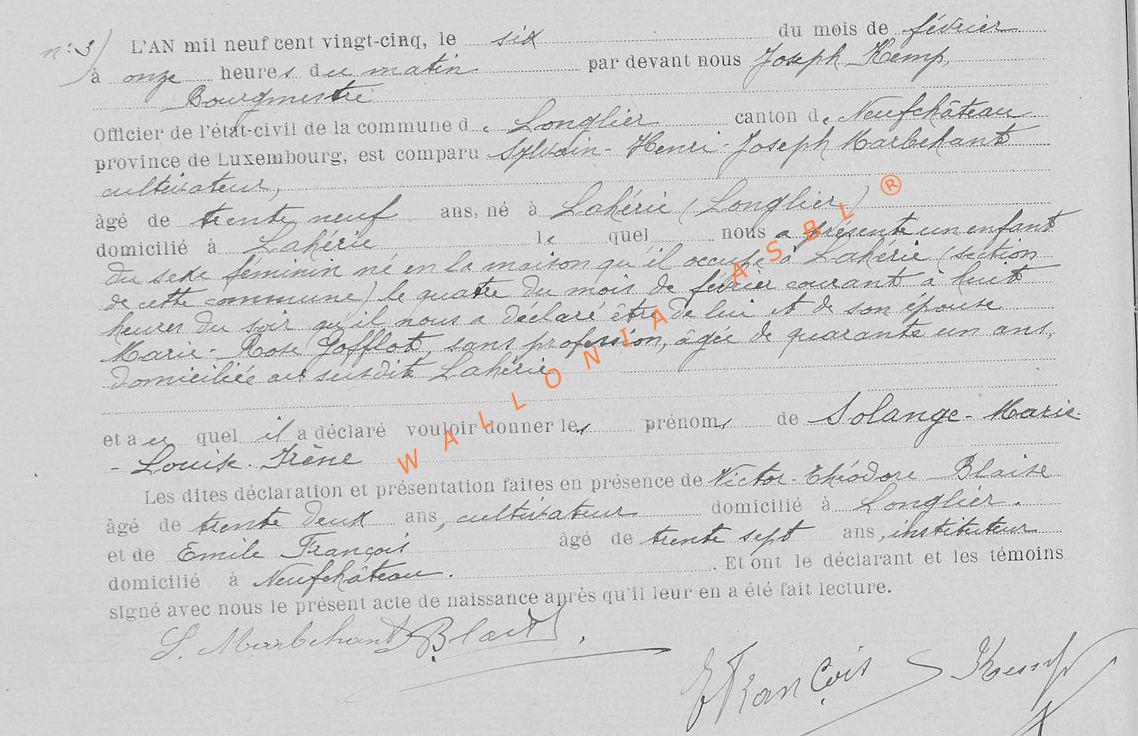 n: 3) L'AN mil neuf cent vingt-cinq, le six du mois de février
à onze heures du matin par devant nous Joseph Kemp,
Bourgmestre
Officier de l'état-civil de la commune de Longlier canton de Neufchâteau
province de Luxembourg, est comparu Sylvain-Henri-Joseph Marbehant
cultivateur,
âgé de trente neuf ans, né à Lahérie (Longlier)
domicilié à Lahérie le quel nous a présenté un enfant
du sexe féminin né en la maison qu'il occupe à Lahérie (section
de cette commune) le quatre du mois de février courant à huit
heures du soir qu'il nous a déclaré être de lui et de son épouse
Marie-Rose Gofflot, sans profession, âgée de quarante un ans,
domiciliée au susdit Lahérie
et au quel il a déclaré vouloir donner les prénoms de Solange-Marie-
-Louise-Irène
Les dites déclaration et présentation faites en présence de Victor-Théodore Blaise
âgé de trente deux ans, cultivateur domicilié à Longlier.
et de Emile François âgé de trente sept ans, instituteur
domicilié à Neufchâteau. Et ont le déclarant et les témoins
signé avec nous le présent acte de naissance après qu'il leur en a été fait lecture.
S. Marbehant Blaise
E François Kemp
WALLONIA ASBL ®